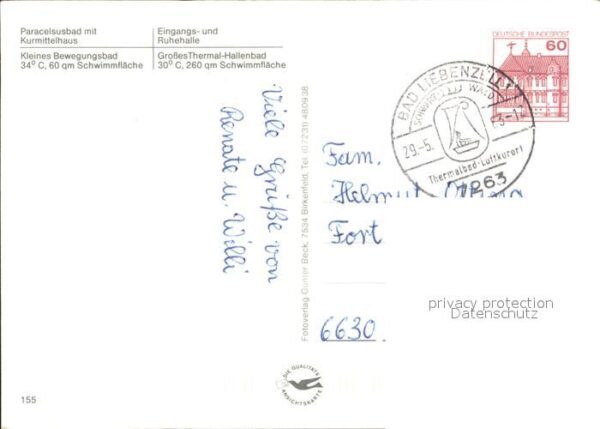 Paracelsusbad mit
Kurmittelhaus
Eingangs- und
Ruhehalle
Kleines Bewegungsbad
34° C, 60 qm Schwimmfläche
GroßesThermal-Hallenbad
30° C, 260 qm Schwimmfläche
DEUTSCHE BUNDESPOST
60
BAD LIEBENZELL
SCHWARZWALD
29.-5.
Thermalbad-Luftkurort
7263
Viele Grüße von
Renate u. Willi
Fotoverlag Günter Beck, 7534 Birkenfeld, Tel. (07231) 480938
Fam.
Helmut
Fort
6630
privacy protection
Datenschutz
DIE QUALITÄTS
ANSICHTSKARTE
155